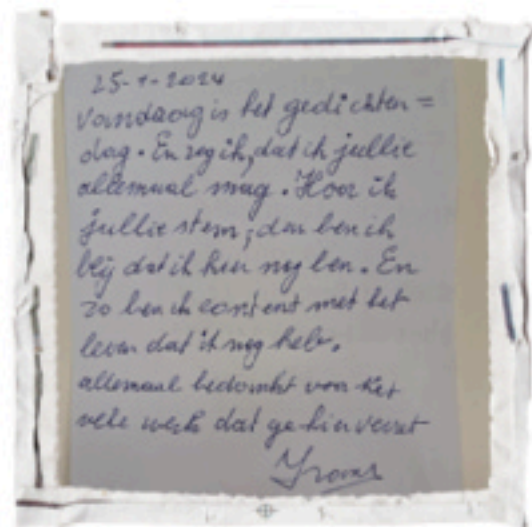 25-1-2024
Vandaag is het gedichten =
dag. En zeg ik, dat ik jullie
allemaal mag. Hoor ik
jullie stem, dan ben ik
blij dat ik hier nog ben. En
zo ben ik content met het
leven dat ik nog heb.
allemaal bedankt voor het
vele werk dat ge hier verzet